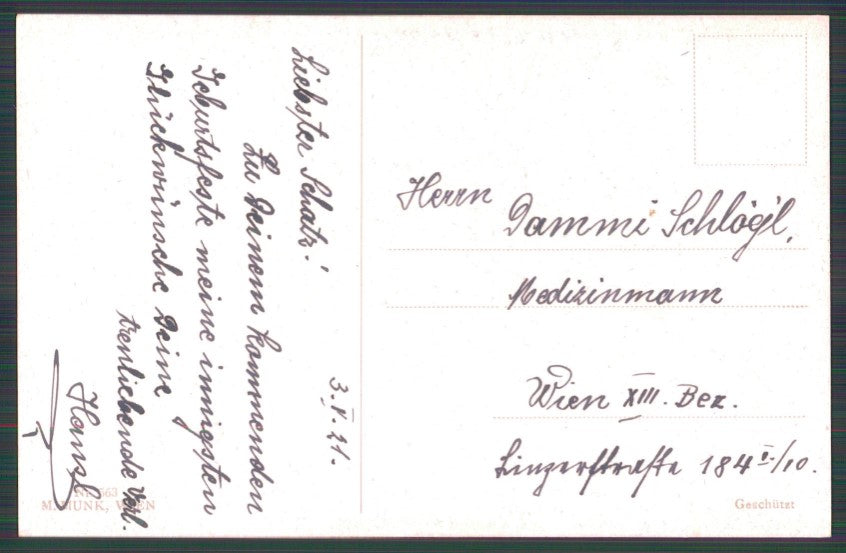 3.V.21.
Liebster Schatz!
Zu Deinem kommenden
Geburtsfeste meine innigsten
Glückwünsche Deine
treuliebende Verl.
Hansl
Herrn
Dammi Schlögl,
Medizinmann
Wien XIII. Bez.
Linzerstraße 184 I./10.
563
M. MUNK, WIEN
Geschützt